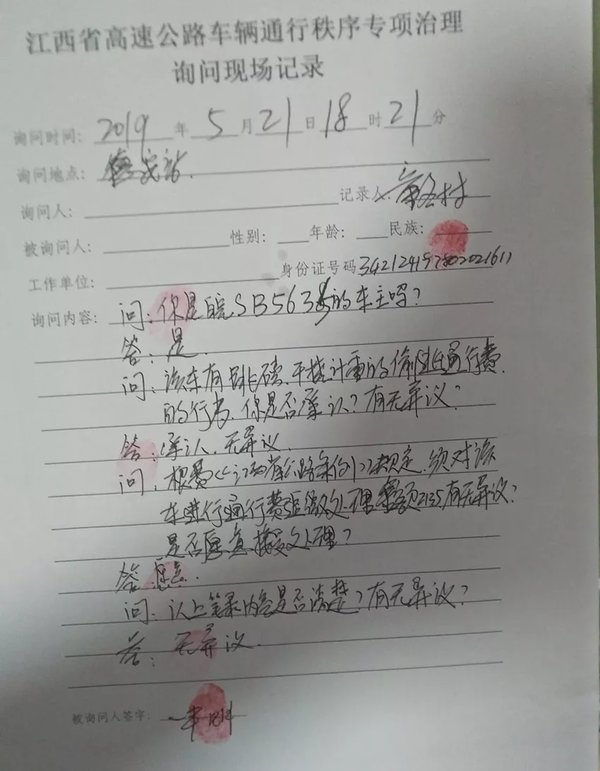 江西省高速公路车辆通行秩序专项治理
询问现场记录
询问时间：2019 年 5 月 21 日 18 时 21 分
询问地点：
询问人： 记录人：
被询问人： 性别： 年龄： 民族：
工作单位： 身份证号码
询问内容：问：你是皖SB563的车主吗？
答：是
问：该车有跳磅、干扰计重的偷逃通行费
的行为，你是否承认？有无异议？
答：承认，无异议
问：根据《江西省公路条例》规定，须对该
车进行通行费 处理 2135有无异议？
是否愿意接受处理？
答：愿意
问：以上笔录内容是否清楚？有无异议？
答：无异议
被询问人签字：